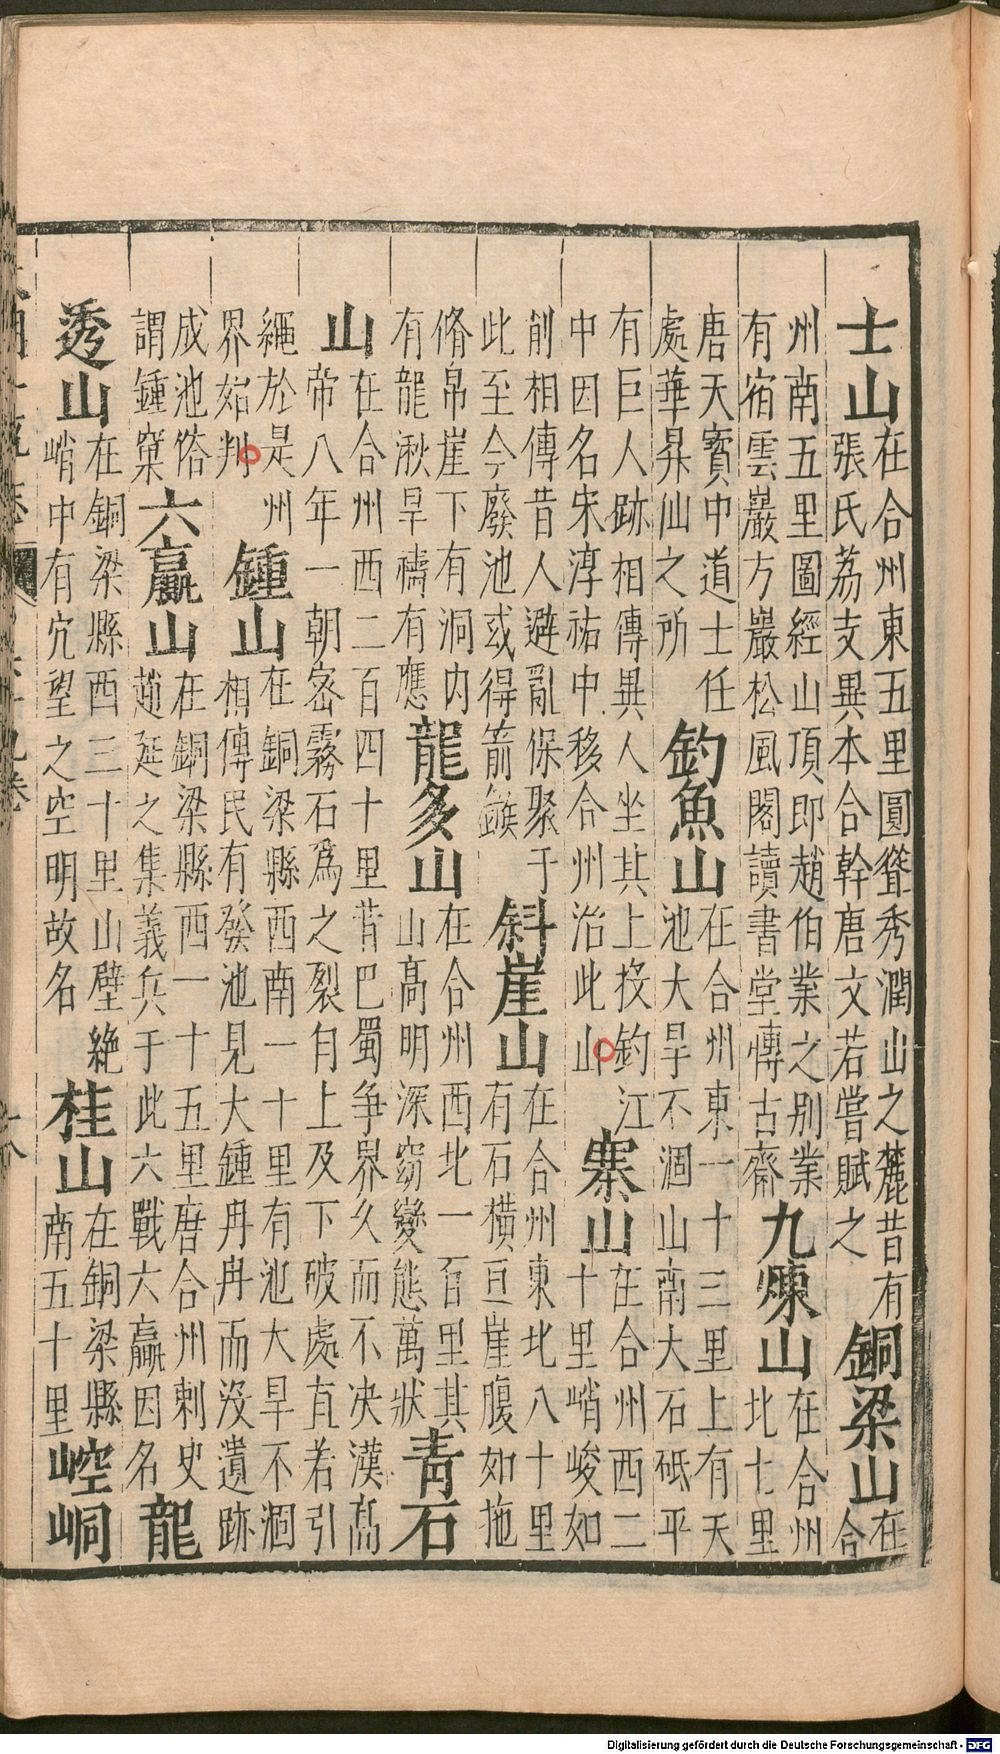 士山在合州東五里圓聳秀潤山之麓昔有張氏荔支異本合幹唐文若嘗賦之銅梁山在合
州南五里圖經山頂即趙伯業之别業有宿雲巖方巖松風閣讀書堂傳古齋九煉山在合州北七里
唐天寳中道士任處華昇仙之所釣魚山在合州東一十三里上有天池大旱不涸山南大石砥平
有巨人跡相傳異人坐其上投釣江中因名宋淳祐中移合州治此山寨山在合州西二十里峭峻如
削相傳昔人避亂保聚于此至今廢池或得箭鏃斜崖山在合州東北八十里有石橫亘崖腹如拖
脩帛崖下有洞内有龍湫旱禱有應龍多山在合州西北一百里其山高明深窈變態萬狀青石
山在合州西二百四十里昔巴蜀爭界久而不决漢高帝八年一朝密霧石爲之裂自上及下破處直若引
繩於是州界始判鍾山在銅梁縣西南一十里有池大旱不涸相傳民有發池見大鍾冉冉而沒遺跡
成池俗謂鍾窠六贏山在銅梁縣西一十五里唐合州刺史趙延之集義兵于此六戰六贏因名龍
透山在銅梁縣西三十里山壁絶峭中有穴望之空明故名桂山在銅梁縣南五十里崆峒
Digitalisierung gefördert durch die Deutsche Forschungsgemeinschaft - DFG